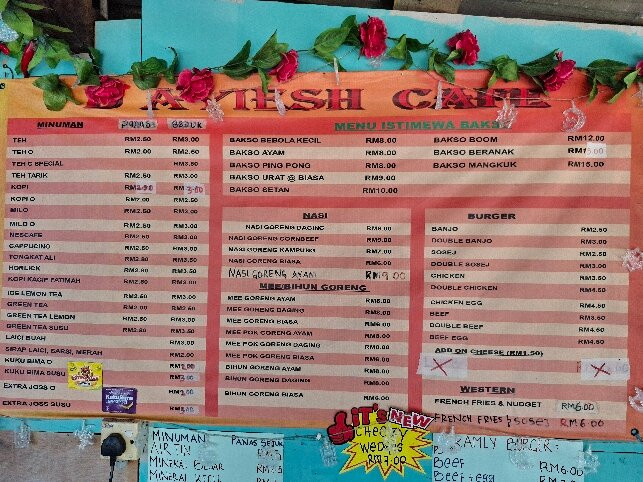 CAFE
MINUMAN PANAS SEJUK
TEH RM2.50 RM3.00
TEH O RM2.00 RM2.50
TEH C SPECIAL RM3.50
TEH TARIK RM2.50 RM3.00
KOPI 3.00
KOPI O RM2.00 RM2.50
MILO RM2.50 RM3.50
MILO O RM2.50 RM3.00
NESCAFE RM2.50 RM3.00
CAPPUCINO RM2.50 RM3.00
TONGKAT ALI RM2.50 RM3.00
HORLICK RM2.50 RM3.00
KOPI KACIP FATIMAH RM2.50 RM3.00
ICE LEMON TEA RM2.50 RM3.00
GREEN TEA RM2.00 RM2.50
GREEN TEA LEMON RM2.50 RM3.00
GREEN TEA SUSU RM2.50 RM3.50
LAICI BUAH RM3.00
SIRAP LAICI, SARSI, MERAH RM2.00
KUKU BIMA O
KUKU BIMA SUSU
EXTRA JOSS O
EXTRA JOSS SUSU
MENU ISTIMEWA BAKSO
BAKSO BEBOLA KECIL RM8.00
BAKSO AYAM RM8.00
BAKSO PING PONG RM8.00
BAKSO URAT @ BIASA RM9.00
BAKSO SETAN RM10.00
BAKSO BOOM RM12.00
BAKSO BERANAK RM15.00
BAKSO MANGKUK RM15.00
NASI
NASI GORENG DAGING
NASI GORENG CORNBEEF RM8.00
NASI GORENG KAMPUNG RM7.00
NASI GORENG BIASA RM6.00
NASI GORENG AYAM RM9.00
MEE/BIHUN GORENG
MEE GORENG AYAM RM8.00
MEE GORENG DAGING RM8.00
MEE GORENG BIASA RM6.00
MEE POK GORENG AYAM RM8.00
MEE POK GORENG DAGING RM8.00
MEE POK GORENG BIASA RM6.00
BIHUN GORENG AYAM RM8.00
BIHUN GORENG DAGING RM8.00
BIHUN GORENG BIASA
BURGER
BANJO RM2.50
DOUBLE BANJO RM3.00
SOSEJ RM2.50
DOUBLE SOSEJ RM3.00
CHICKEN RM3.50
DOUBLE CHICKEN RM4.50
CHICKEN EGG RM4.50
BEEF RM3.50
DOUBLE BEEF RM4.50
BEEF EGG RM4.50
ADD ON CHEESE (RM1.50)
WESTERN
FRENCH FRIES & NUDGET RM6.00
FRENCH FRIES & SOSEJ RM6.00
IT'S NEW
CHEEZY
WEDGES
RM7.00
MINUMAN PANAS SEJUK
AIR TIN
MINERAL BESAR
MINERAL KECIL
RAMLY BURGER
BEEF RM6.00
BEEF+EGG